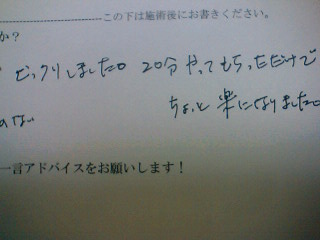 この下は施術後にお書きください。
か？
ビックリしました。20分やってもらっただけで
ちょっと楽になりました。
一言アドバイスをお願いします！